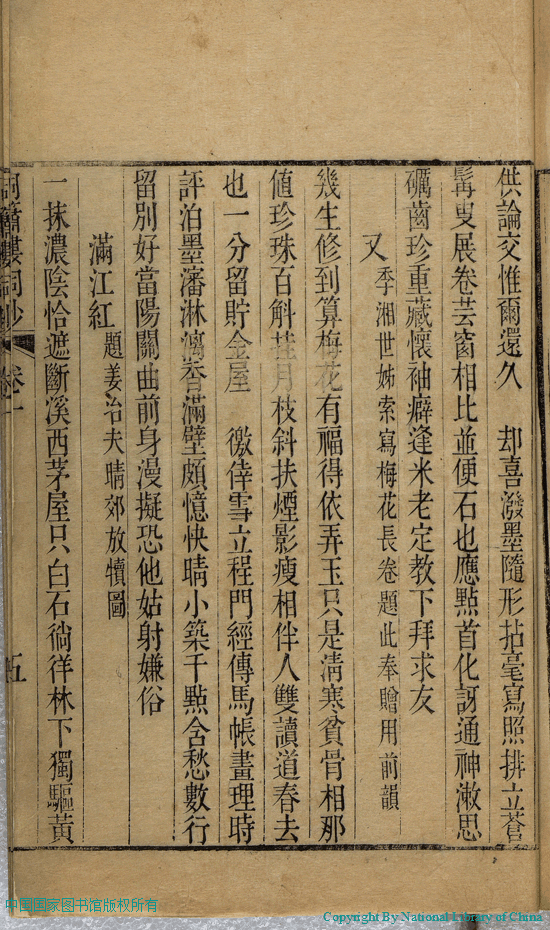 供論交惟爾還久　却喜潑墨隨形拈毫寫照排立蒼
髯叟展卷芸窗相比並便石也應點首化訝通神漱思
礪齒珍重藏懷袖癖逢米老定教下拜求友
又季湘世姊索寫梅花長卷題此奉贈用前韻
幾生修到算梅花有福得依弄玉只是清寒貧骨相那
值珍珠百斛挂月枝斜扶煙影瘦相伴人雙讀道春去
也一分留貯金屋　徼倖雪立程門經傳馬帳畫理時
評泊墨瀋淋漓春滿壁頗憶快晴小築千點含愁數行
留別好當陽關曲前身漫擬恐他姑射嫌俗
滿江紅題姜治夫晴郊放犢圖
一抹濃陰恰遮斷溪西茅屋只白石徜徉林下獨驅黃
洞簫樓詞鈔　卷一　五
中国国家图书馆版权所有
Copyright By National Library of China